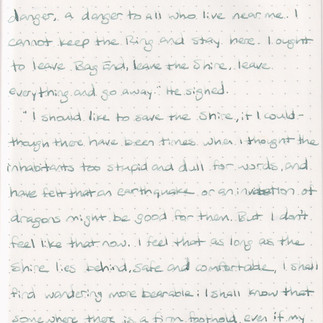 danger, a danger to all who live near me. I
cannot keep the Ring and stay here. I ought
to leave Bag End, leave the Shire, leave
everything and go away." He signed.
"I should like to save the Shire, if I could-
though there have been times when I thought the
inhabitants too stupid and dull for words, and
have felt that an earthquake or an invasion of
dragons might be good for them. But I don't
feel like that now. I feel that as long as the
Shire lies behind, safe and comfortable, I shall
find wandering more bearable: I shall know that
somewhere there is a firm foothold, even if my